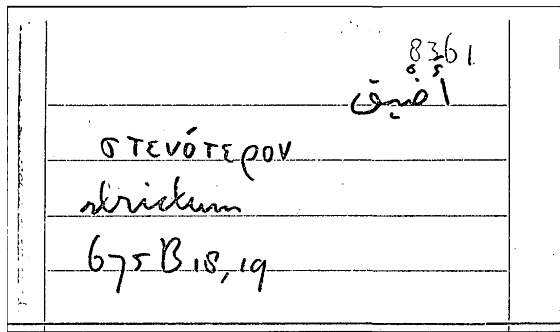 8361
اضيق
στενότερον
strictum
675 B 18, 19